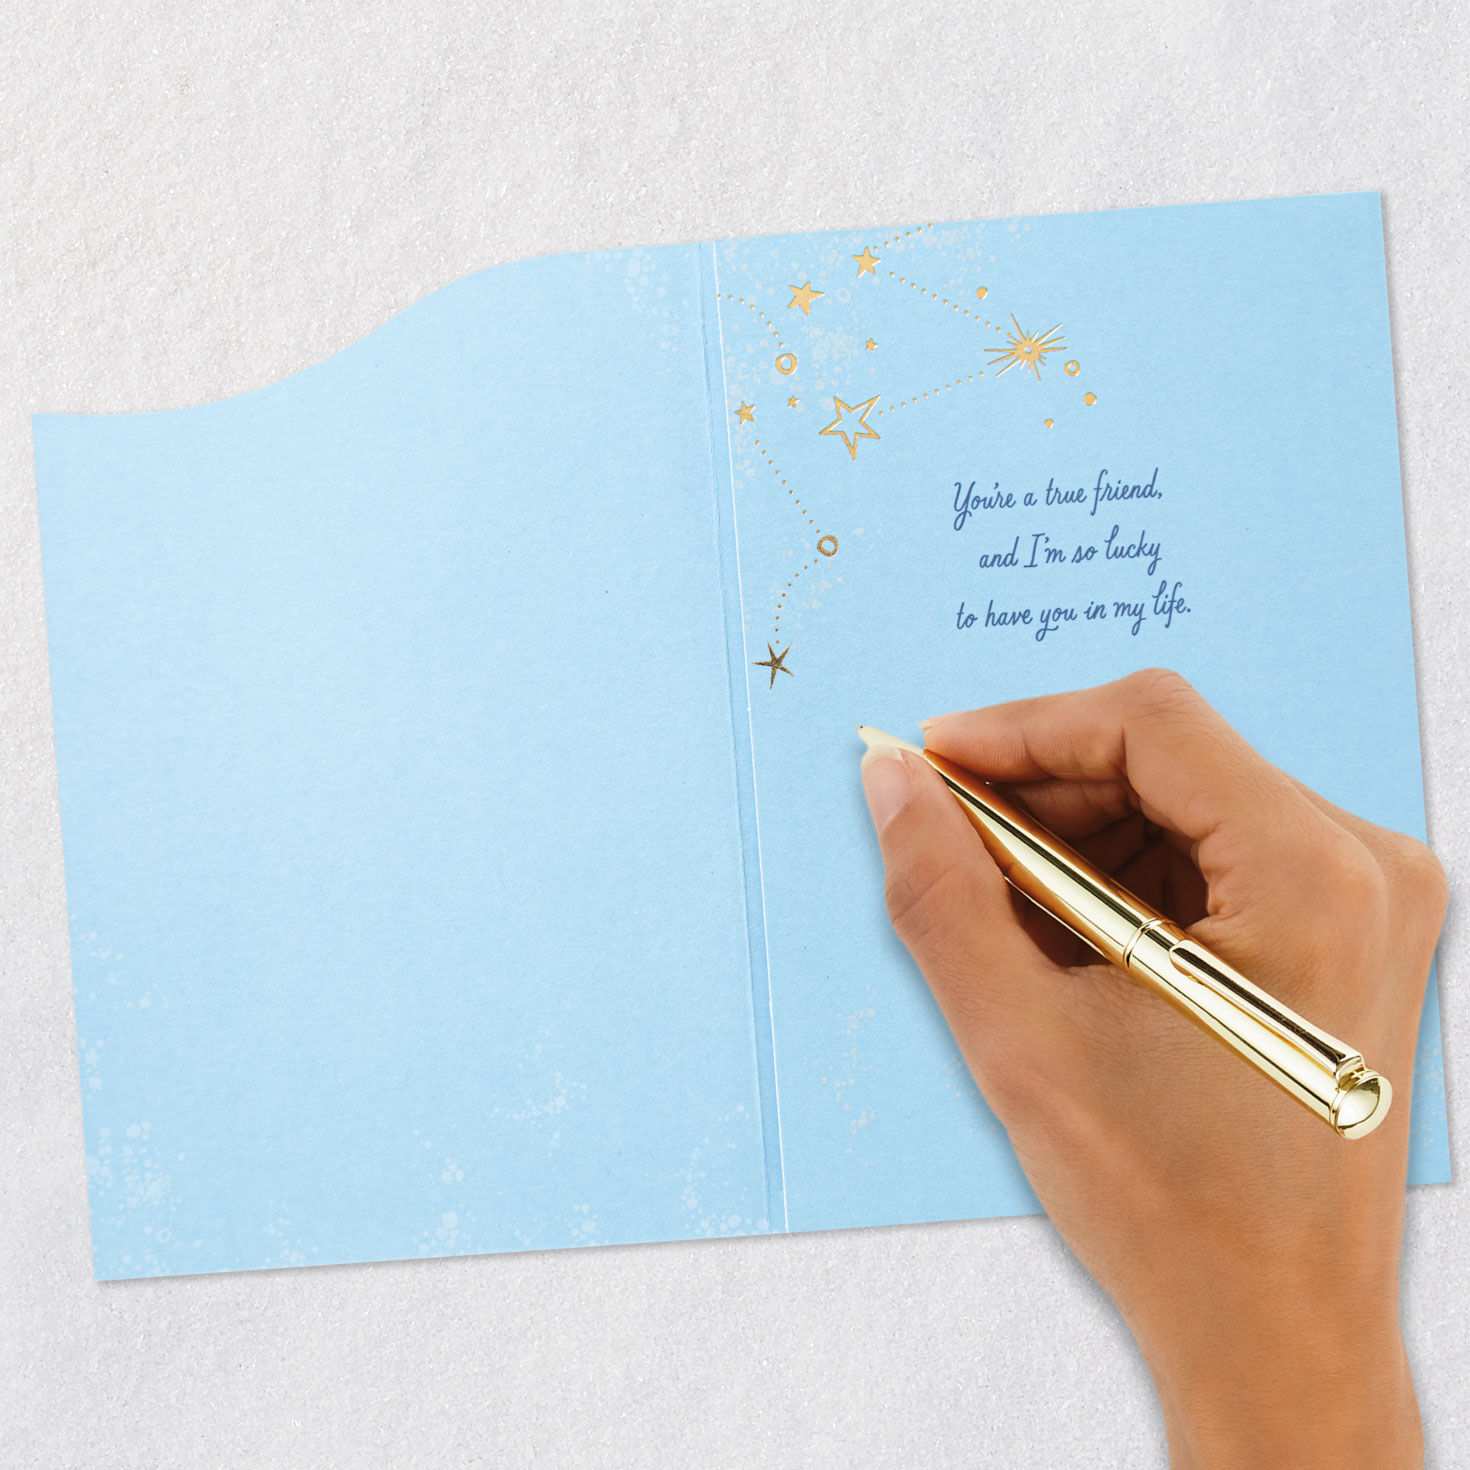 You're a true friend,
and I'm so lucky
to have you in my life.